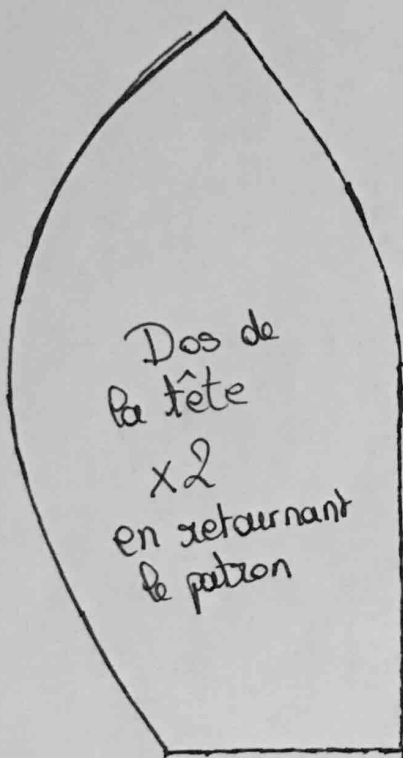 Dos de
la tête
x2
en retournant
le patron